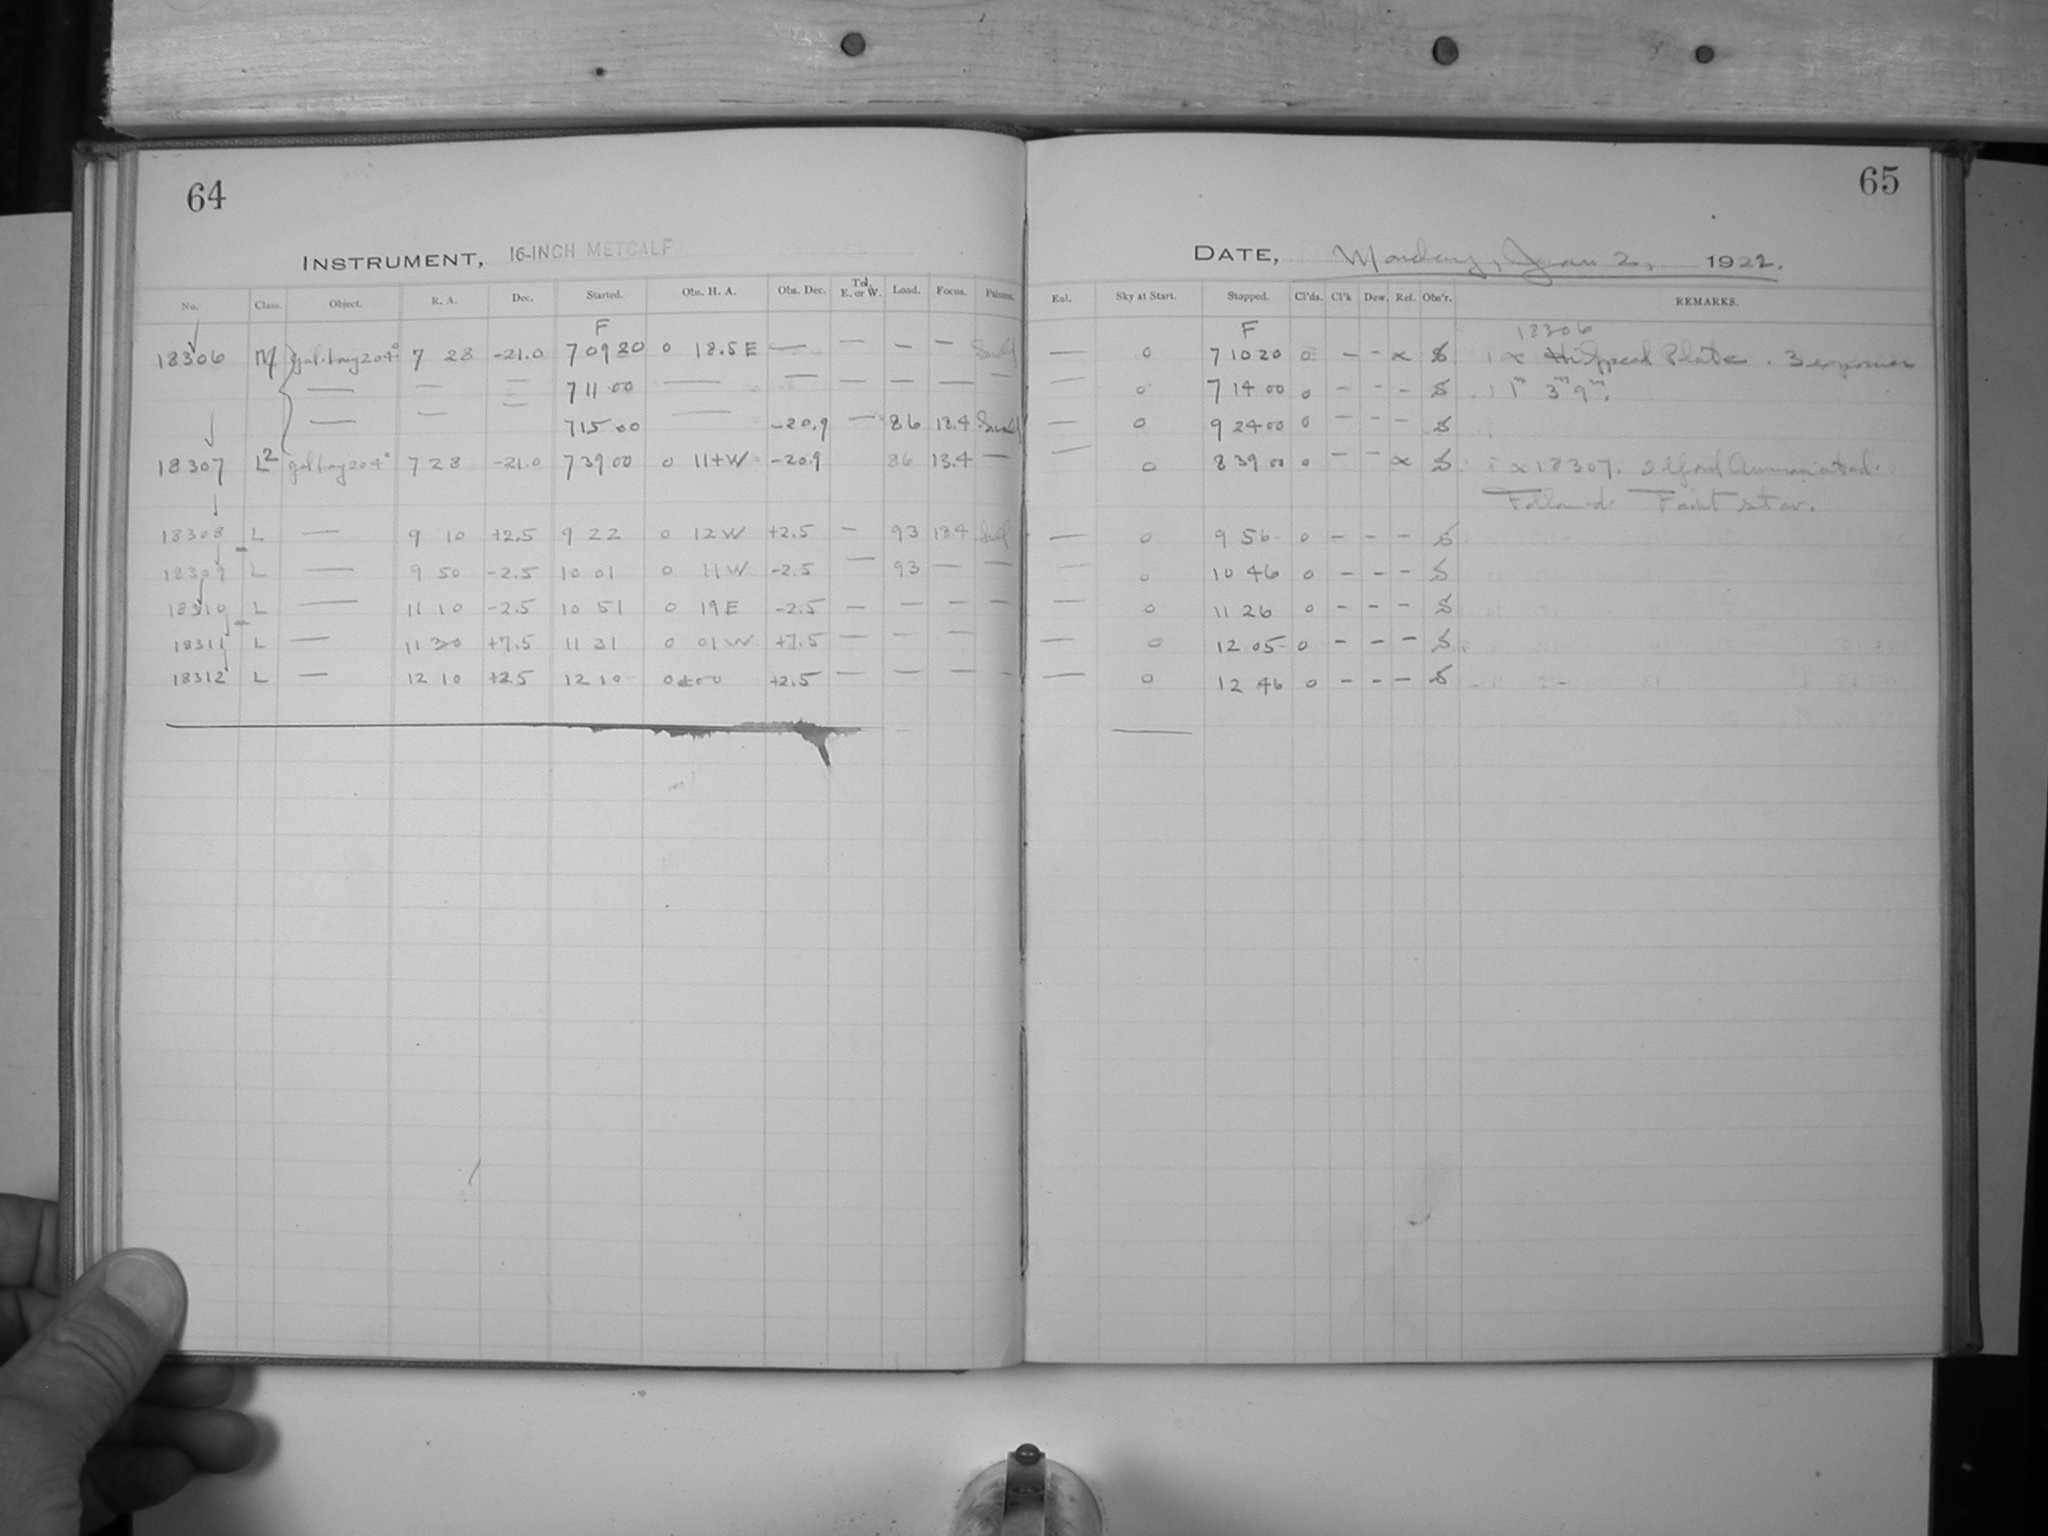 64
INSTRUMENT, 16-INCH METCALF
No. Class. Object. R. A. Dec. Started. Obs. H. A. Obs. Dec. Tel. E. or W. Load. Focus. Prisms.
F
18306 M gal. long 204° 7 28 -21.0 7 09 20 0 18.5 E — — — —
— — — 7 11 00 — — — — — —
— — — 7 15 00 — -20.9 — 86 13.4
18307 L2 gal long 204° 7 28 -21.0 7 39 00 0 11+W -20.9 86 13.4 —
18308 L — 9 10 +2.5 9 22 0 12 W +2.5 — 93 13.4
18309 L — 9 50 -2.5 10 01 0 11 W -2.5 — 93 — —
18310 L — 11 10 -2.5 10 51 0 19 E -2.5 — — — —
18311 L — 11 30 +7.5 11 31 0 01 W +7.5 — — —
18312 L — 12 10 +2.5 12 10 0±00 +2.5 — — — -
65
DATE, Monday, Jan 2, 1922.
Eol. Sky at Start. Stopped. Cl'ds. Cl'k Dew. Ref. Obs'r. REMARKS.
F 18306
— 0 7 10 20 0 - - α S 1 α Speed Plate. 3 exposures
— 0 7 14 00 0 - - - S 1m 3m 9m.
— 0 9 24 00 0 - - - S
— 0 8 39 00 0 - - α S α 18307. Ilford Ammoniated.
Followed Faint star.
— 0 9 56 0 - - - S
— 0 10 46 0 - - - S
— 0 11 26 0 - - - S
— 0 12 05 0 - - - S
— 0 12 46 0 - - - S